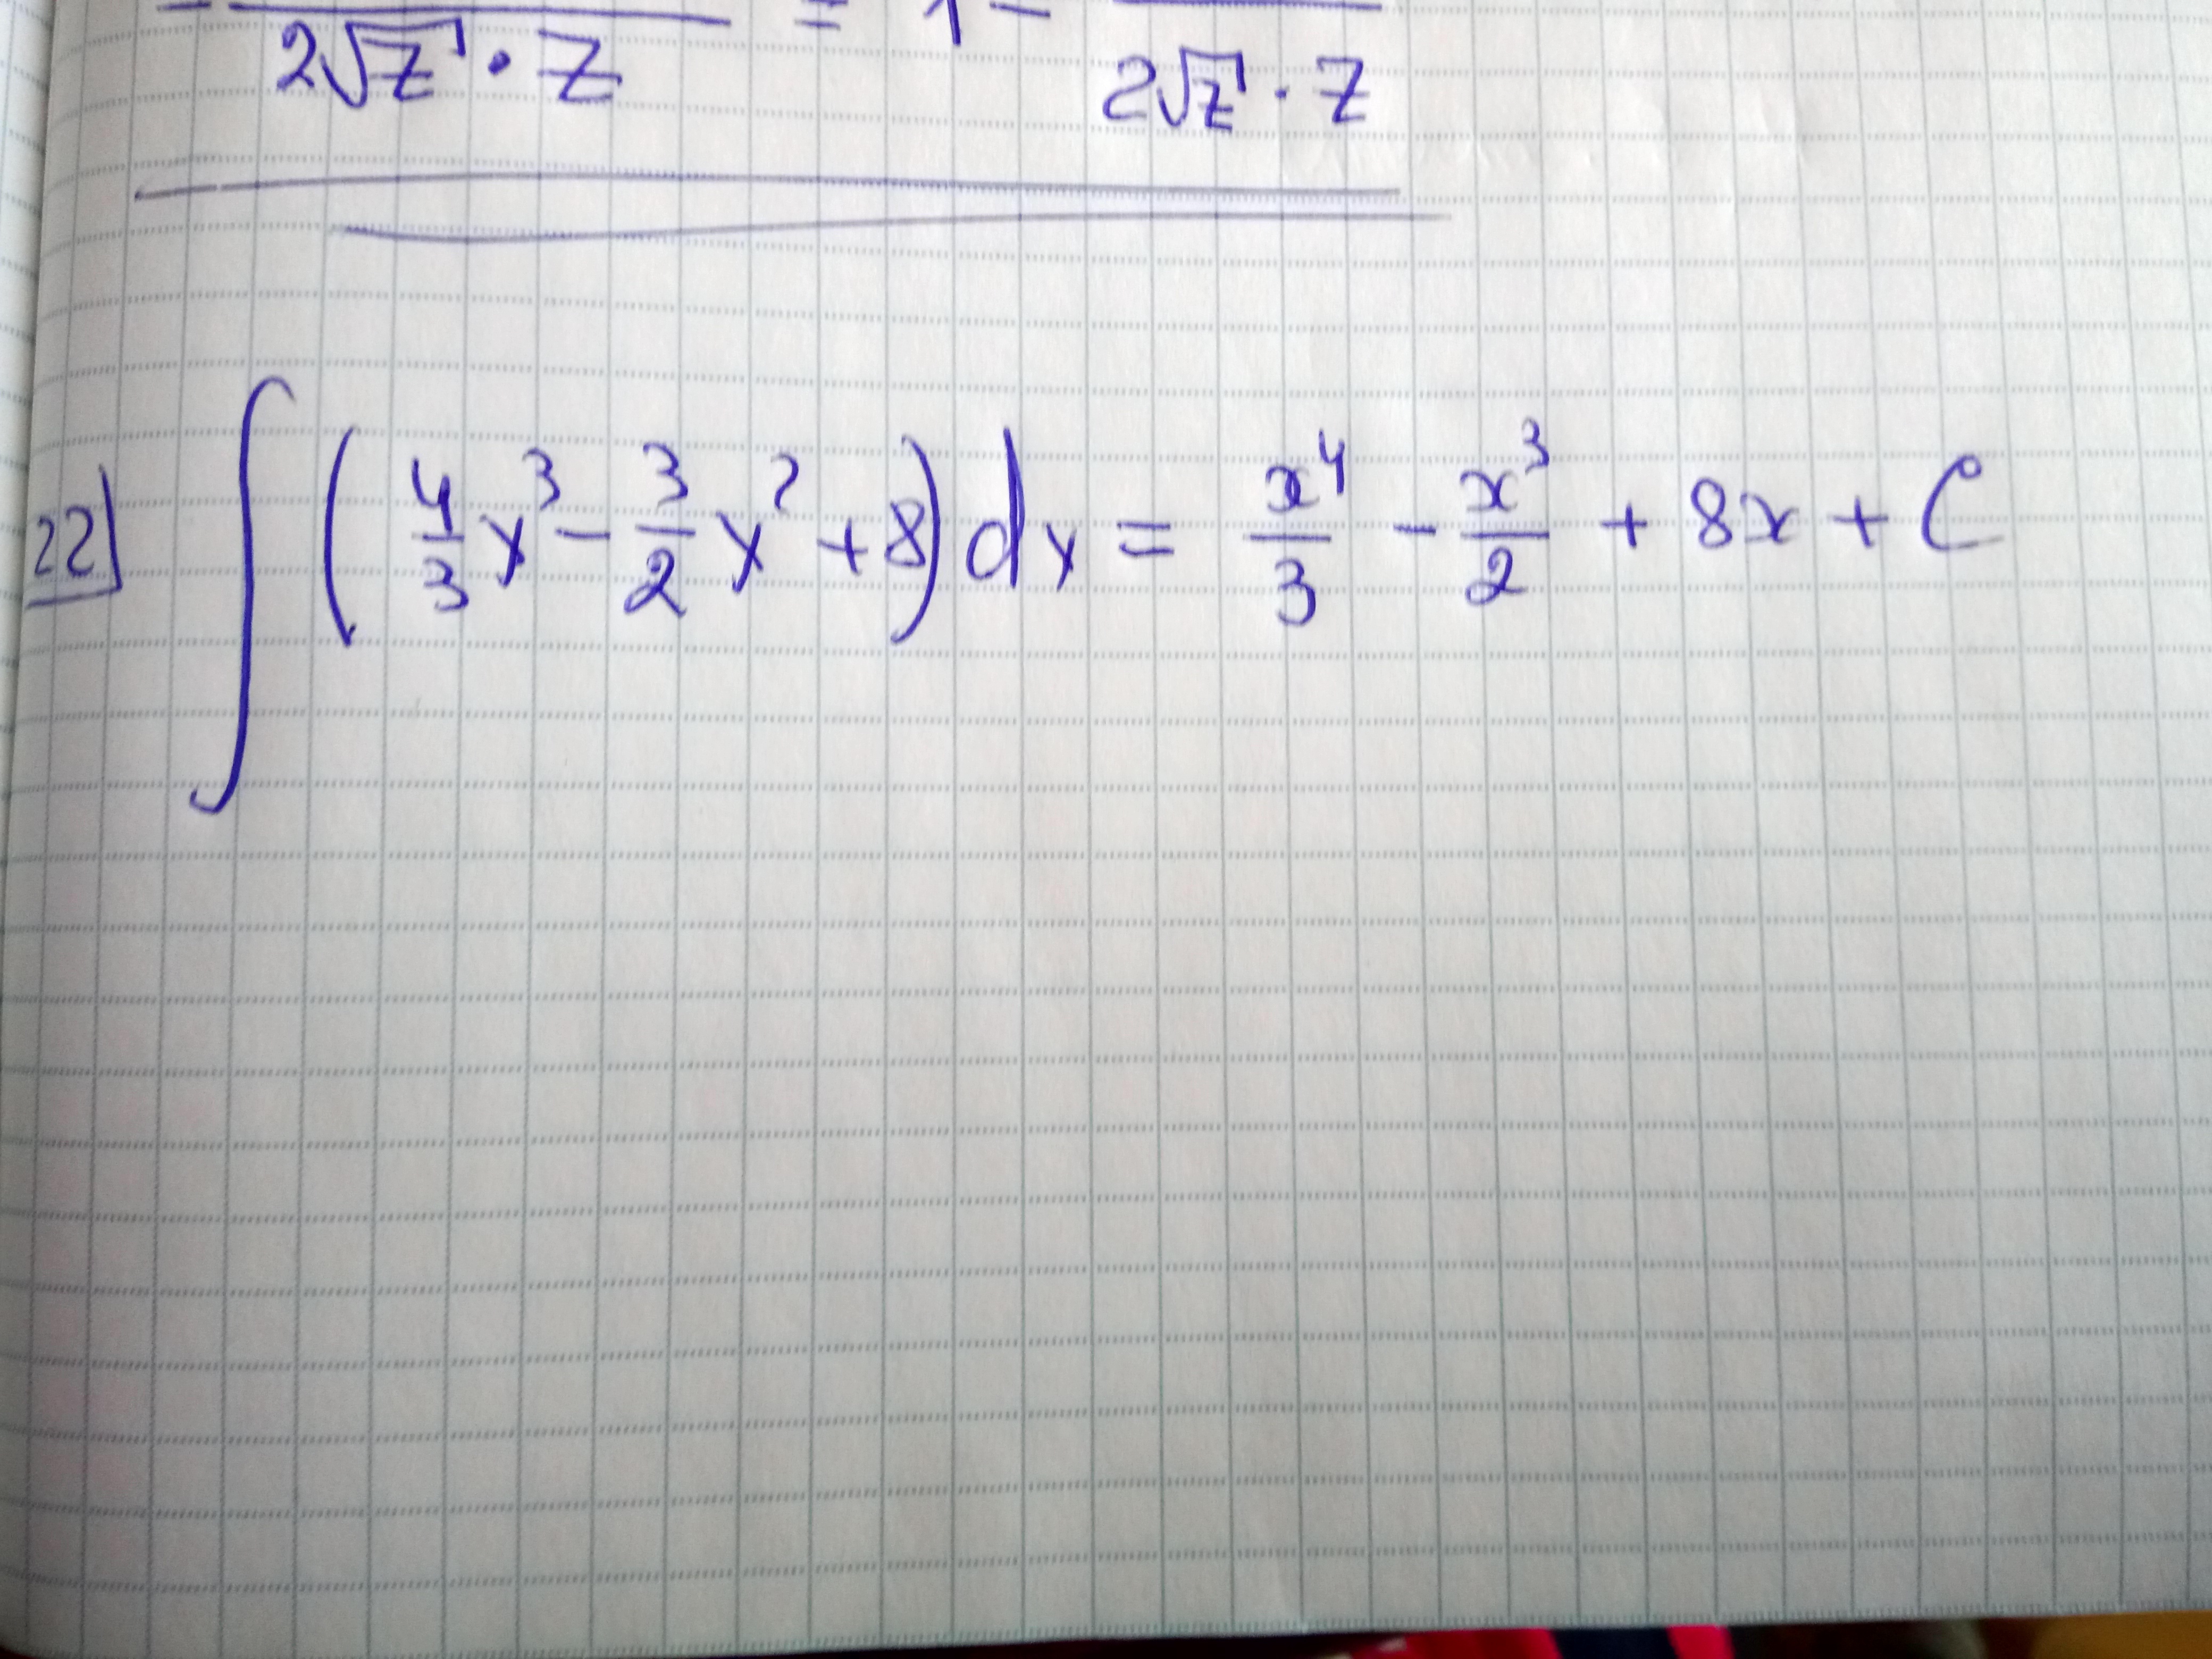 2√z · z = 1 - 2√z · z
22) ∫ (4/3 x³ - 3/2 x² + 8) dx = x⁴/3 - x³/2 + 8x + C